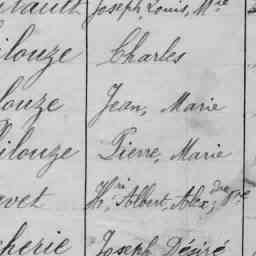 Joseph, Louis, Mie
ilouze Charles
louze Jean, Marie
ilouze Pierre, Marie
vet Hri, Albert, Alexdre,
cherie Joseph Désiré